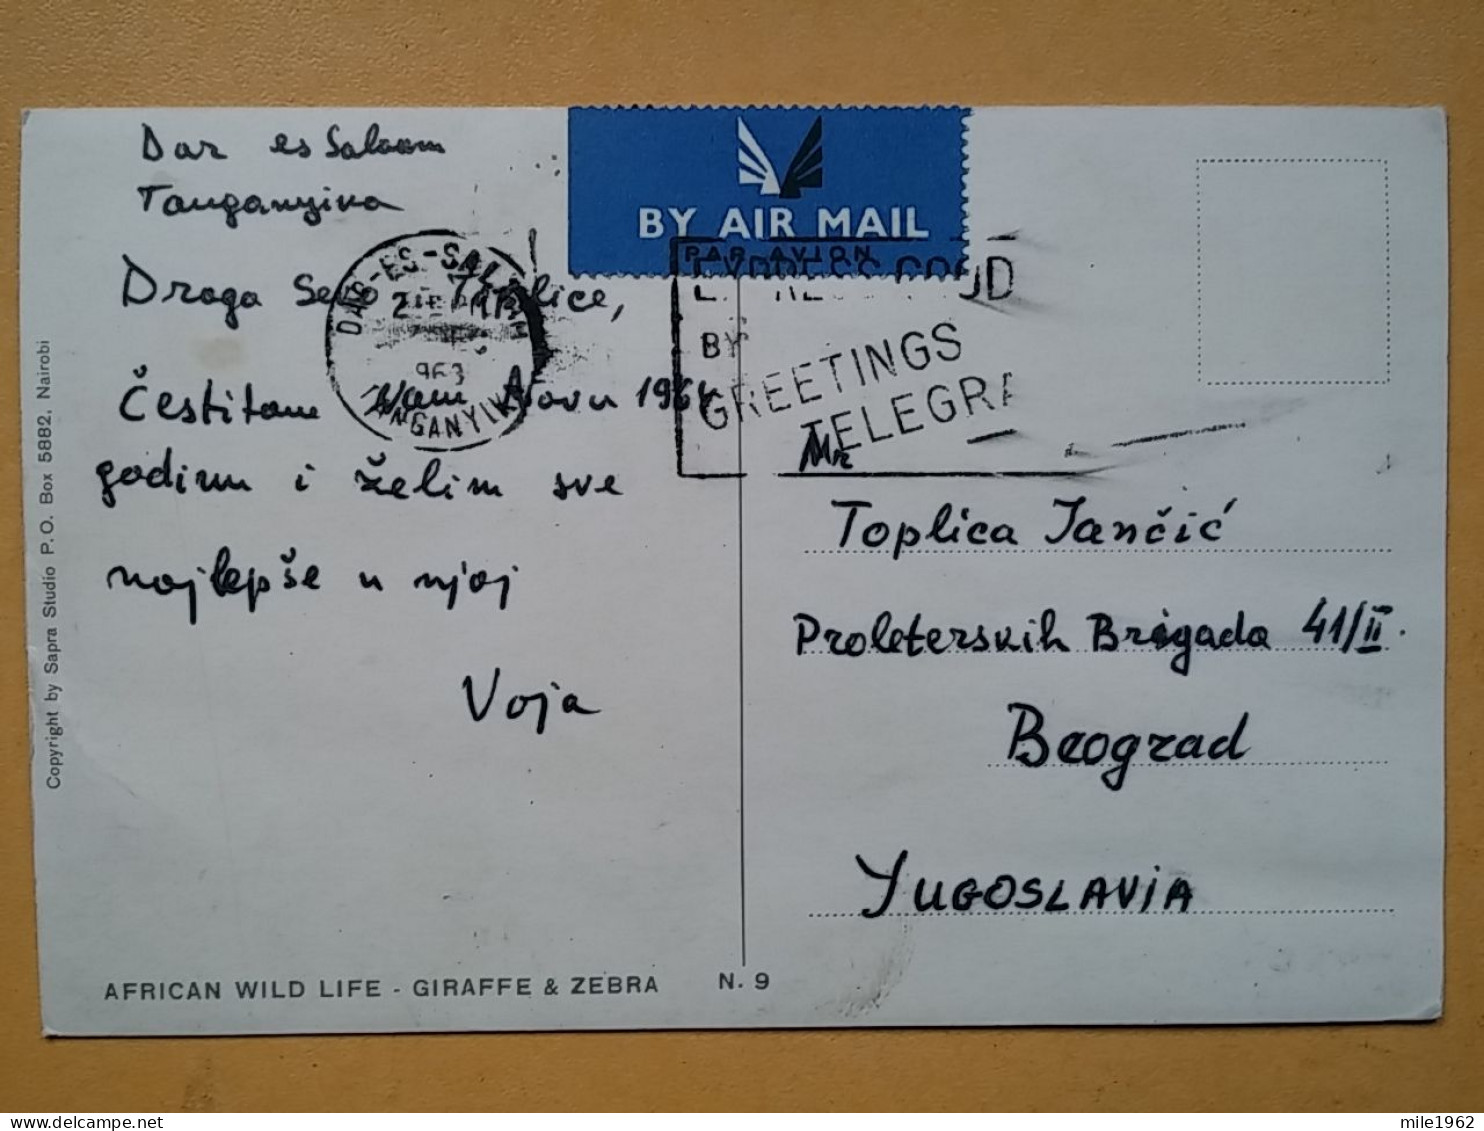 Dar es Salaam
Tanganyika
Draga Seko Toplice,
Čestitam Vam Novu 1964
godinu i želim sve
najlepše u njoj
Voja
BY AIR MAIL
PAR AVION
DAR-ES-SALAAM
963
TANGANYIKA
BY
GREETINGS
TELEGRA
Mr
Toplica Jančić
Proleterskih Brigada 41/II.
Beograd
YUGOSLAVIA
Copyright by Sapra Studio P.O. Box 5882, Nairobi
AFRICAN WILD LIFE - GIRAFFE & ZEBRA N. 9
mile1962